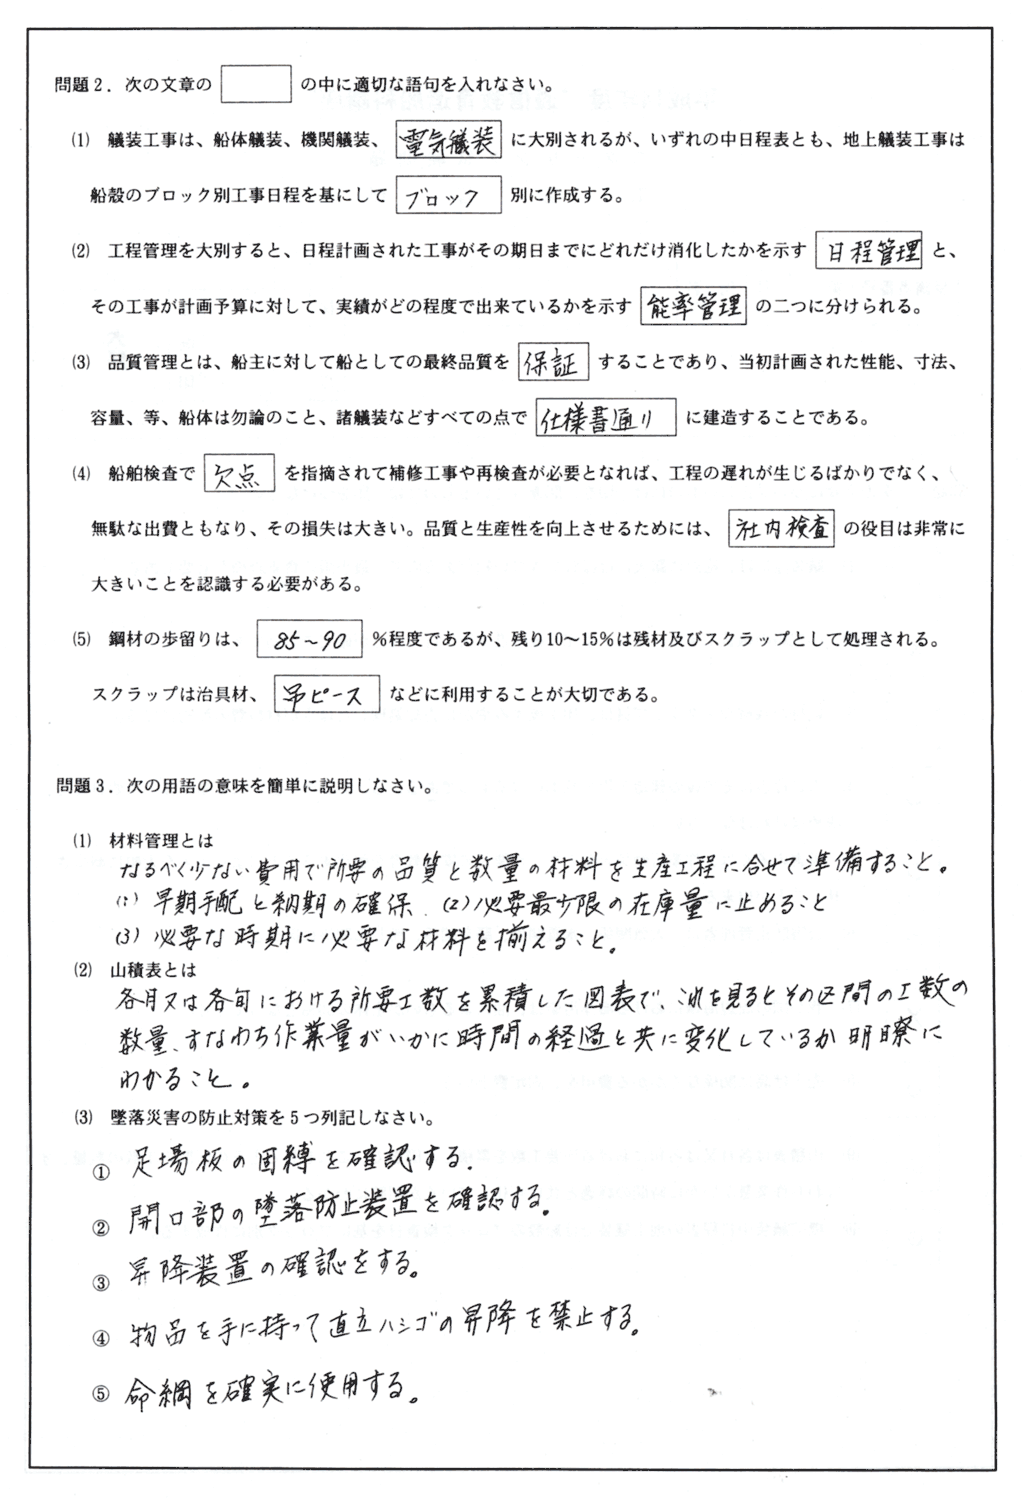 問題2．次の文章の の中に適切な語句を入れなさい。
(1) 艤装工事は、船体艤装、機関艤装、 電気艤装 に大別されるが、いずれの中日程表とも、地上艤装工事は
船殻のブロック別工事日程を基にして ブロック 別に作成する。
(2) 工程管理を大別すると、日程計画された工事がその期日までにどれだけ消化したかを示す 日程管理 と、
その工事が計画予算に対して、実績がどの程度で出来ているかを示す 能率管理 の二つに分けられる。
(3) 品質管理とは、船主に対して船としての最終品質を 保証 することであり、当初計画された性能、寸法、
容量、等、船体は勿論のこと、諸艤装などすべての点で 仕様書通り に建造することである。
(4) 船舶検査で 欠点 を指摘されて補修工事や再検査が必要となれば、工程の遅れが生じるばかりでなく、
無駄な出費ともなり、その損失は大きい。品質と生産性を向上させるためには、 社内検査 の役目は非常に
大きいことを認識する必要がある。
(5) 鋼材の歩留りは、 85～90 ％程度であるが、残り10～15％は残材及びスクラップとして処理される。
スクラップは治具材、 吊ピース などに利用することが大切である。
問題3．次の用語の意味を簡単に説明しなさい。
(1) 材料管理とは
なるべく少ない費用で所要の品質と数量の材料を生産工程に合せて準備すること。
(1) 早期手配と納期の確保、(2) 必要最少限の在庫量に止めること
(3) 必要な時期に必要な材料を揃えること。
(2) 山積表とは
各月又は各旬における所要工数を累積した図表で、これを見るとその区間の工数の
数量、すなわち作業量がいかに時間の経過と共に変化しているか明瞭に
わかること。
(3) 墜落災害の防止対策を5つ列記しなさい。
① 足場板の固縛を確認する。
② 開口部の墜落防止装置を確認する。
③ 昇降装置の確認をする。
④ 物品を手に持って直立ハシゴの昇降を禁止する。
⑤ 命綱を確実に使用する。